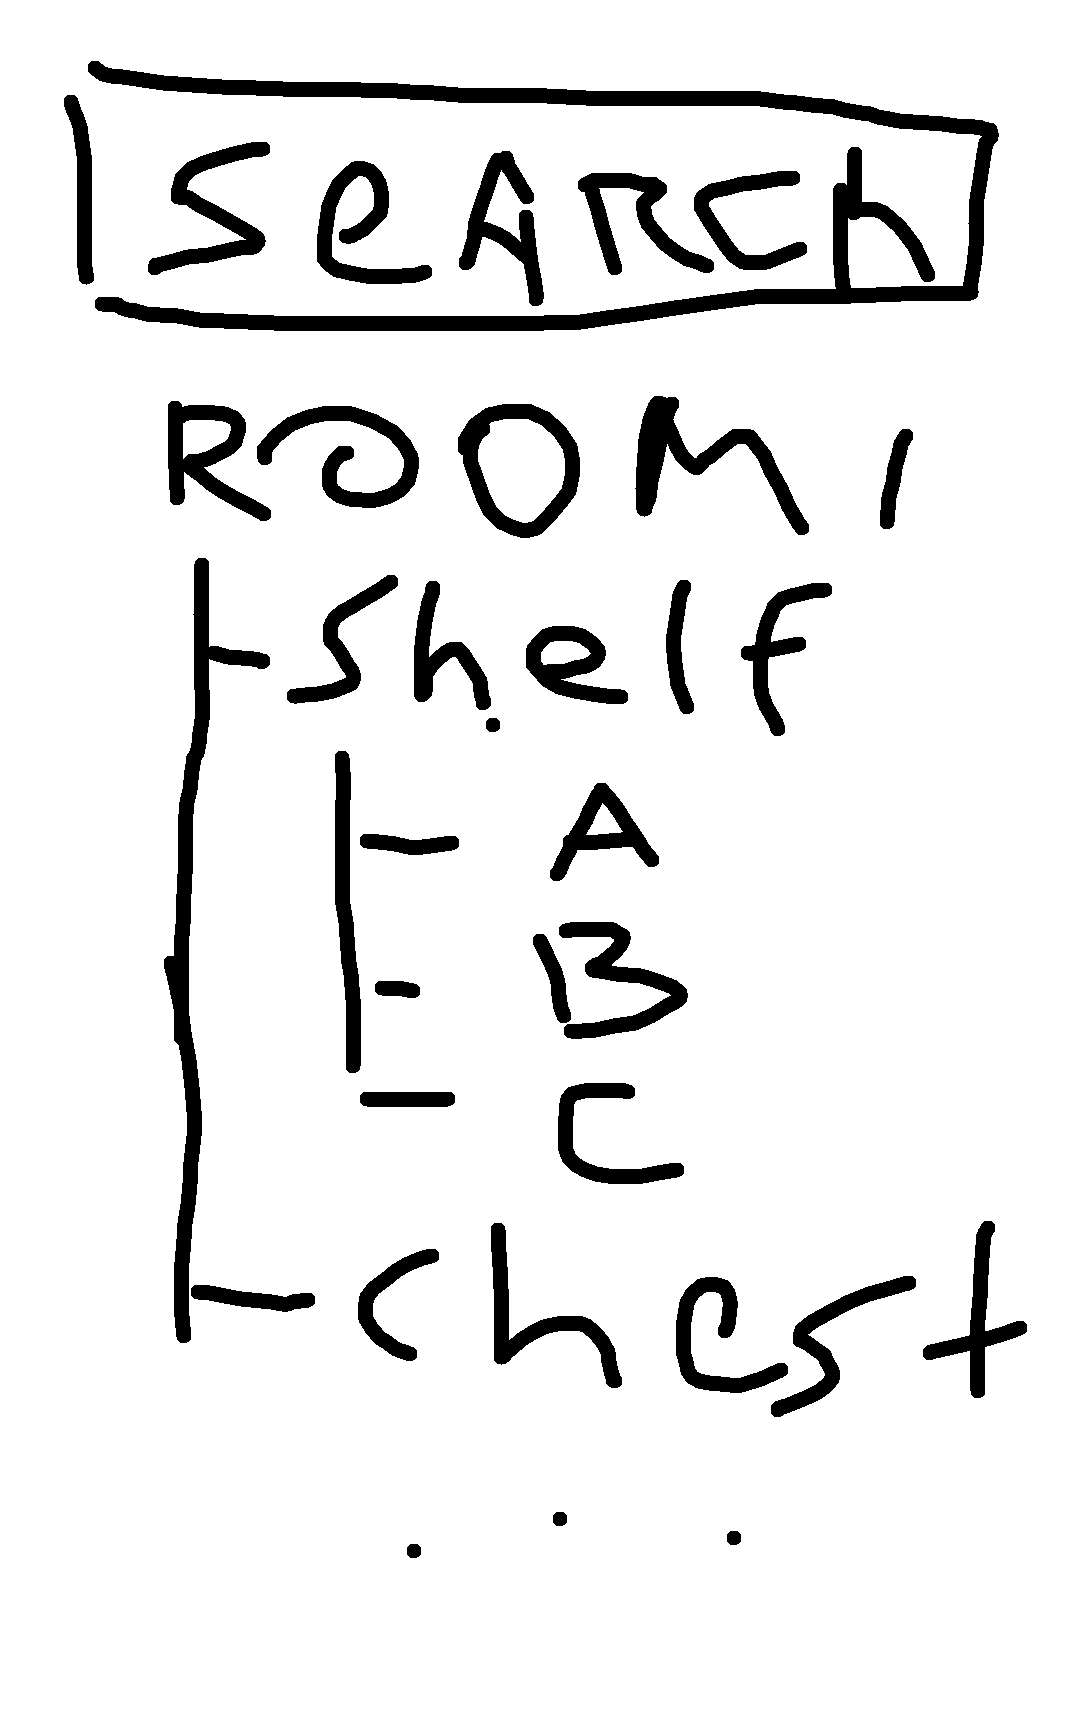 SeARCh
ROOM 1
Shelf
A
B
C
Chest
...